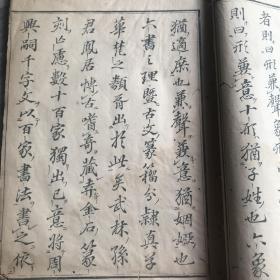 者則曰形兼聲兼
則曰形兼意十形猶子姓也六爲
猶適庶也兼聲兼意猶姻婭也
六書之理暨古文篆籀分隸真草
華梵之類胥出於此矣武林孫
君鳳居博古嗜奇藏弆金石篆
刻以慮數十百家獨出己意將周
興嗣千字文以百家書法書之